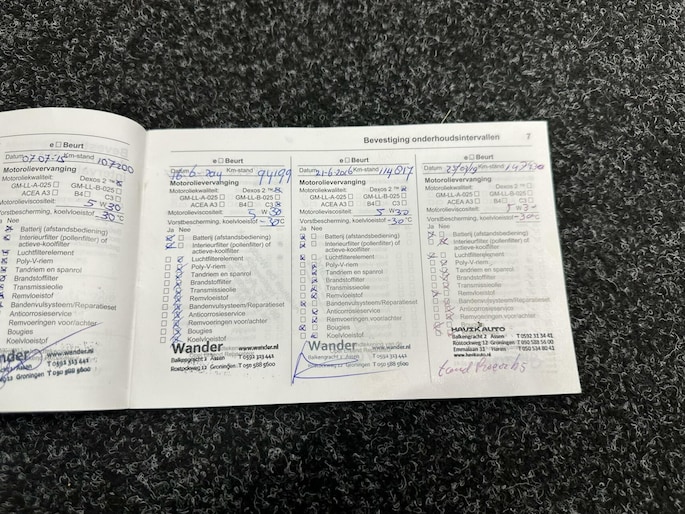 Bevestiging onderhoudsintervallen 7
e Beurt
Datum 07-07-15 Km-stand 107200
Motorolievervanging
Motoroliekwaliteit: Dexos 2
GM-LL-A-025 GM-LL-B-025
ACEA A3 B4 C3
Motorolieviscositeit: 5 W 30
Vorstbescherming, koelvloeistof -30°C
Ja Nee
Batterij (afstandsbediening)
Interieurfilter (pollenfilter) of
actieve-koolfilter
Luchtfilterelement
Poly-V-riem
Tandriem en spanrol
Brandstoffilter
Transmissieolie
Remvloeistof
Bandenvulsysteem/Reparatieset
Anticorrosieservice
Remvoeringen voor/achter
Bougies
Koelvloeistof
Wander www.wander.nl
Balkengracht 2 Assen T 0592 323 441
Groningen T 050 588 5600
e Beurt
Km-stand 94199
Motorolievervanging
Motoroliekwaliteit: Dexos 2
GM-LL-A-025 GM-LL-B-025
ACEA A3 B4 C3
Motorolieviscositeit: 5 W 30
Vorstbescherming, koelvloeistof -30°C
Ja Nee
Batterij (afstandsbediening)
Interieurfilter (pollenfilter) of
actieve-koolfilter
Luchtfilterelement
Poly-V-riem
Tandriem en spanrol
Brandstoffilter
Transmissieolie
Remvloeistof
Bandenvulsysteem/Reparatieset
Anticorrosieservice
Remvoeringen voor/achter
Bougies
Koelvloeistof
Wander www.wander.nl
Balkengracht 2 Assen T 0592 323 441
Rostockweg 12 Groningen T 050 588 5600
e Beurt
Datum 21-6-2016 Km-stand 114817
Motorolievervanging
Motoroliekwaliteit: Dexos 2
GM-LL-A-025 GM-LL-B-025
ACEA A3 B4 C3
Motorolieviscositeit: 5 W 30
Vorstbescherming, koelvloeistof -30°C
Ja Nee
Batterij (afstandsbediening)
Interieurfilter (pollenfilter) of
actieve-koolfilter
Luchtfilterelement
Poly-V-riem
Tandriem en spanrol
Brandstoffilter
Transmissieolie
Remvloeistof
Bandenvulsysteem/Reparatieset
Anticorrosieservice
Remvoeringen voor/achter
Bougies
Koelvloeistof
Wander www.wander.nl
Balkengracht 2 Assen T 0592 323 441
Rostockweg 12 Groningen T 050 588 5600
e Beurt
Datum Km-stand
Motorolievervanging
Motoroliekwaliteit: Dexos 2
GM-LL-A-025 GM-LL-B-025
ACEA A3 B4 C3
Motorolieviscositeit: 5 W 30
Vorstbescherming, koelvloeistof -30°C
Ja Nee
Batterij (afstandsbediening)
Interieurfilter (pollenfilter) of
actieve-koolfilter
Luchtfilterelement
Poly-V-riem
Tandriem en spanrol
Brandstoffilter
Transmissieolie
Remvloeistof
Bandenvulsysteem/Reparatieset
Anticorrosieservice
Remvoeringen voor/achter
Bougies
HAVIK AUTO
Balkengracht 2 Assen T 0592 31 34 41
Rostockweg 12 Groningen T 050 588 56 00
Emmalaan 31 Haren T 050 534 80 41